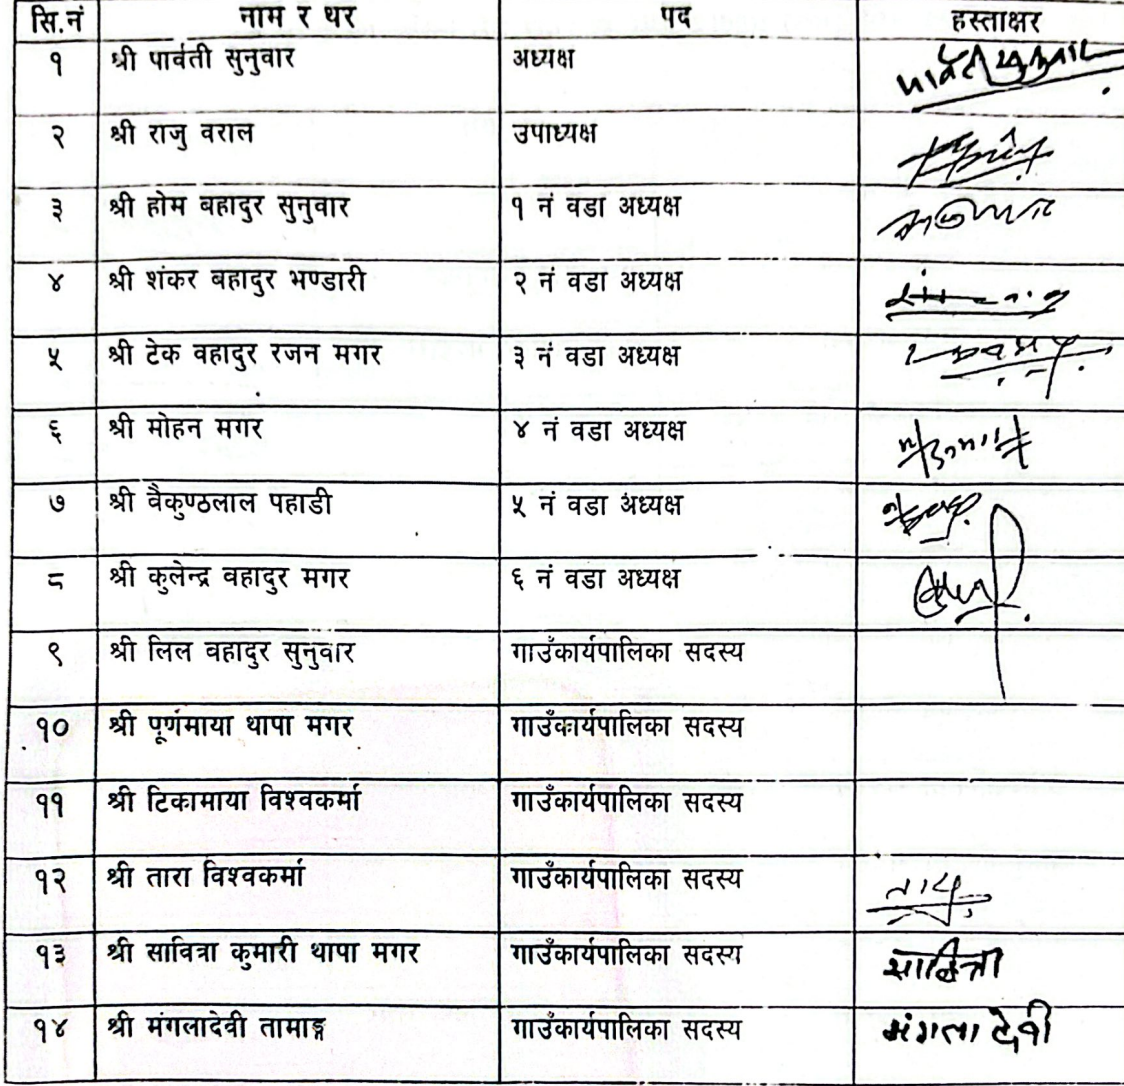 सि.नं नाम र थर पद हस्ताक्षर
१ श्री पार्वती सुनुवार अध्यक्ष पार्वती सुनुवार
२ श्री राजु वराल उपाध्यक्ष
३ श्री होम बहादुर सुनुवार १ नं वडा अध्यक्ष
४ श्री शंकर बहादुर भण्डारी २ नं वडा अध्यक्ष
५ श्री टेक वहादुर रजन मगर ३ नं वडा अध्यक्ष
६ श्री मोहन मगर ४ नं वडा अध्यक्ष
७ श्री वैकुण्ठलाल पहाडी ५ नं वडा अध्यक्ष
८ श्री कुलेन्द्र वहादुर मगर ६ नं वडा अध्यक्ष
९ श्री लिल वहादुर सुनुवार गाउँकार्यपालिका सदस्य
१० श्री पूर्णमाया थापा मगर गाउँकार्यपालिका सदस्य
११ श्री टिकामाया विश्वकर्मा गाउँकार्यपालिका सदस्य
१२ श्री तारा विश्वकर्मा गाउँकार्यपालिका सदस्य
१३ श्री सावित्रा कुमारी थापा मगर गाउँकार्यपालिका सदस्य सावित्रा
१४ श्री मंगलादेवी तामाङ्ग गाउँकार्यपालिका सदस्य मंगला देवी